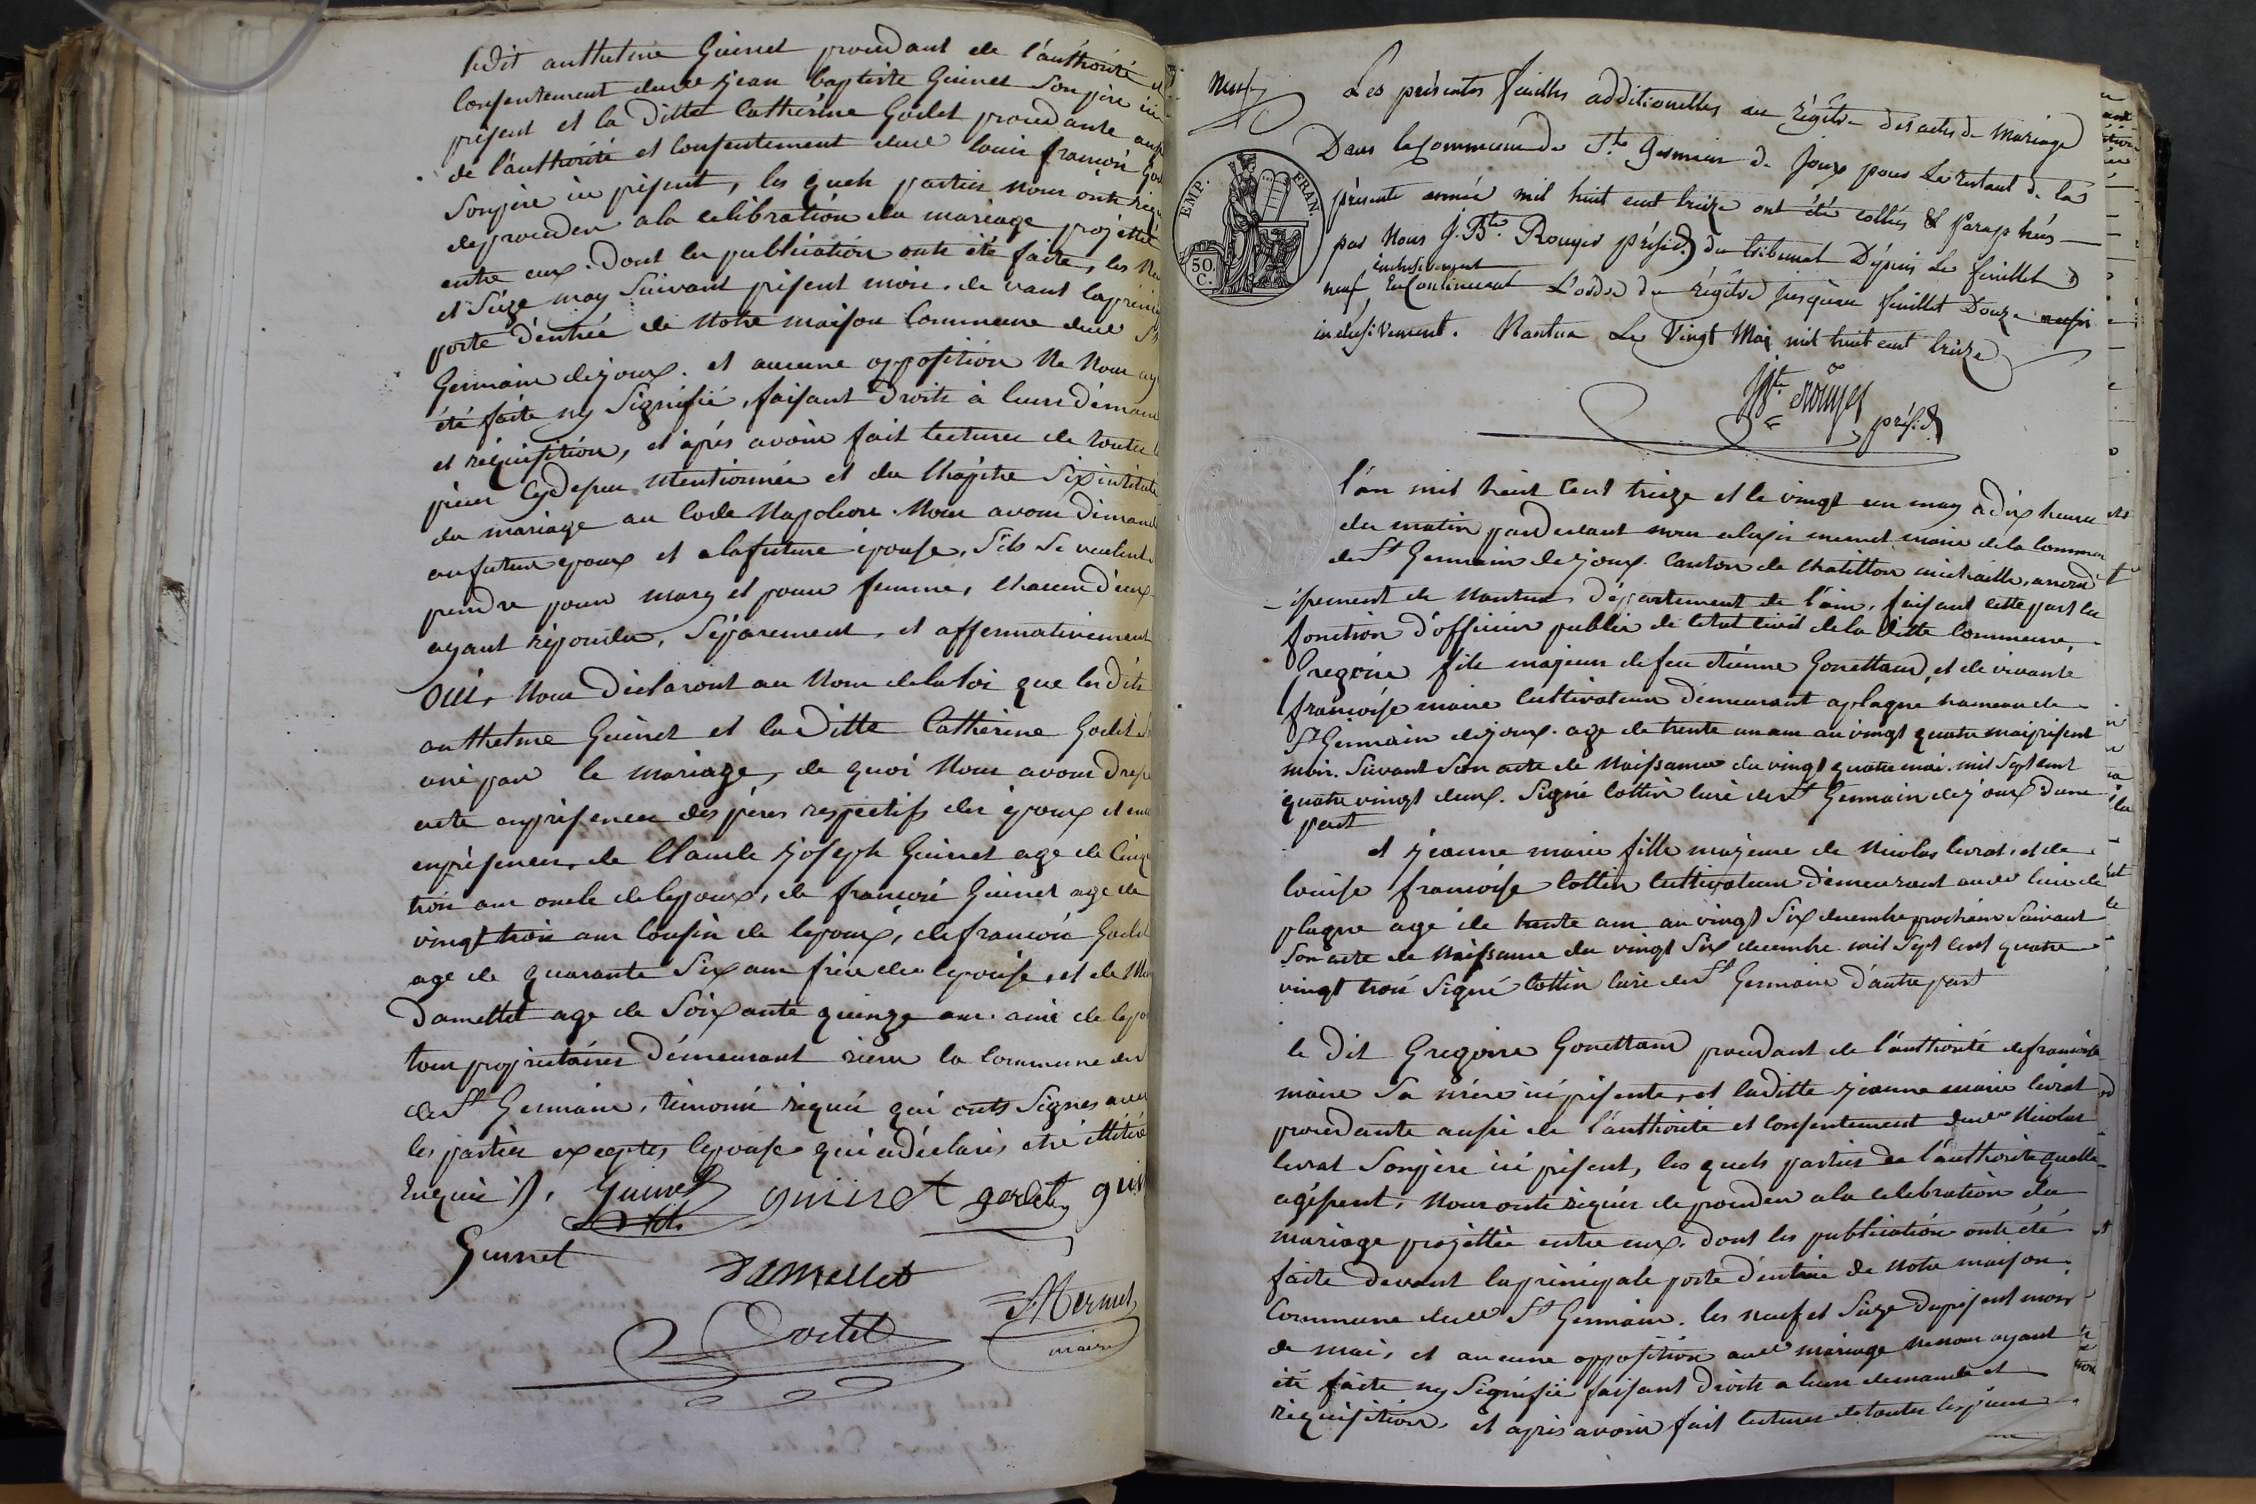 le dit anthelme Guinet procedant de l'authorité et
consentement dud sr jean baptiste Guinet son père ici
présent et la ditte Catherine Godet procedante aussi
de l'authorité et consentement dud louis françois God
son père ici présent, les quels parties nous onts requ
de proceder a la celebration du mariage projetté
entre eux. dont les publications onts été faite, les ne
et Seize may suivant présent mois. devant la princi
porte d'entrée de notre maison Commune dud St
Germain dejoux. et aucune opposition Ne Nous ay
été faite ny Signifié, faisant Droits à leurs démand
et réquisition, et après avoir fait lecture de toutes
pièces Cydessus Mentionnée et du Chapitre Six intitulé
du mariage au Code Napoleon. Nous avons Démandé
au futur epoux et a la future épouse, S'ils Se veulent
prendre pour mary et pour femme, chacun d'eux
ayant répondu, Séparement, et affermativement
Oui, Nous Declaront au Nom de la Loi que les dits
anthelme Guinet et la Ditte Catherine Godet s
uni par le mariage, de quoi Nous avons Dressé
acte en présence des pères respectifs des époux et en
en présence de Claude joseph Guinet age de Cinq
trois ans oncle de lepoux, de françois Guinet age de
vingt trois ans Cousin de lepoux, de françois Godet
age de quarante Six ans frère de lepouse, et de M
Damettet age de Soixante quinze ans. ami de lepo
tous proprietaires Démeurant riere la Commune du
de St Germain, témoins réquis qui onts Signés avec
les parties exceptes lepouse qui a déclarés etre illitéré
Enquise /. Guinet fils guinet godet gui
Guinet Damettet
Godet AMermet
maire
Neuf
Les présentes feuilles additionelles au régitre des actes de Mariage
Dans la Commune de St. Germain de Joux pour Le restant de la
présente année mil huit cent treize ont été cottés & Paraphés
par Nous J. Bte. Rouyer présid. du tribunal Dépuis Le feuillet
inclusivement
neuf, En Continuant L'ordre du régitre jusqu'au feuillet Douze
inclusivement. Nantua Le Vingt Mai mil huit cent treize
JBte Rouyer
présid.
EMP. FRAN.
50. C.
l'an mil huit Cent treize et le vingt un may à dix heures
du matin pardevant nous alexis mermet maire de la Commune
de St Germain dejoux. Canton de Chatillon michaille, arrond
issement de Nantua Département de l'ain, faisant cette part les
fonction d'officier public de letat civil de la ditte Commune,
Gregoire fils majeur de feu etienne Gonettand, et de vivante
françoise maire Cultivateur démeurant a plagne hameau de
St Germain dejoux. age de trente un ans au vingt quatre mai présent
mois. Suivant Son acte de Naissance du vingt quatre mai. mil Sept cent
quatre vingt deux. Signé Cottin Curé de St Germain dejoux d'une
part
et jeanne marie fille majeure de Nicolas livrat, et de
louise françoise Cottin Cultivateur démeurant aud lieu de
plagne age de trente ans au vingt Six decembre prochain Suivant
Son acte de Naissance du vingt Six decembre mil Sept Cent quatre
vingt trois Signé Cottin Curé de St Germain d'autre part
le Dit Gregoire Gonettand procedant de l'authorité de françoise
maire Sa mère ici présente, et laditte jeanne marie livrat
procedante aussi de l'authorité et Consentement dud Nicolas
livrat Son père ici présent, les quels parties de l'authorité quelle
agissent, Nous onts requis de proceder a la celebration du
mariage projettée entre eux. dont les publications onts été
faite devant la principale porte d'entrée de Notre maison
Commune dud St Germain. les neuf et Seize du présent mois
de mai, et aucune opposition aud mariage ne nous ayant
été faite ny Signifié faisant Droits a leurs demande et
réquisition et après avoir fait lecture de toutes les pieces